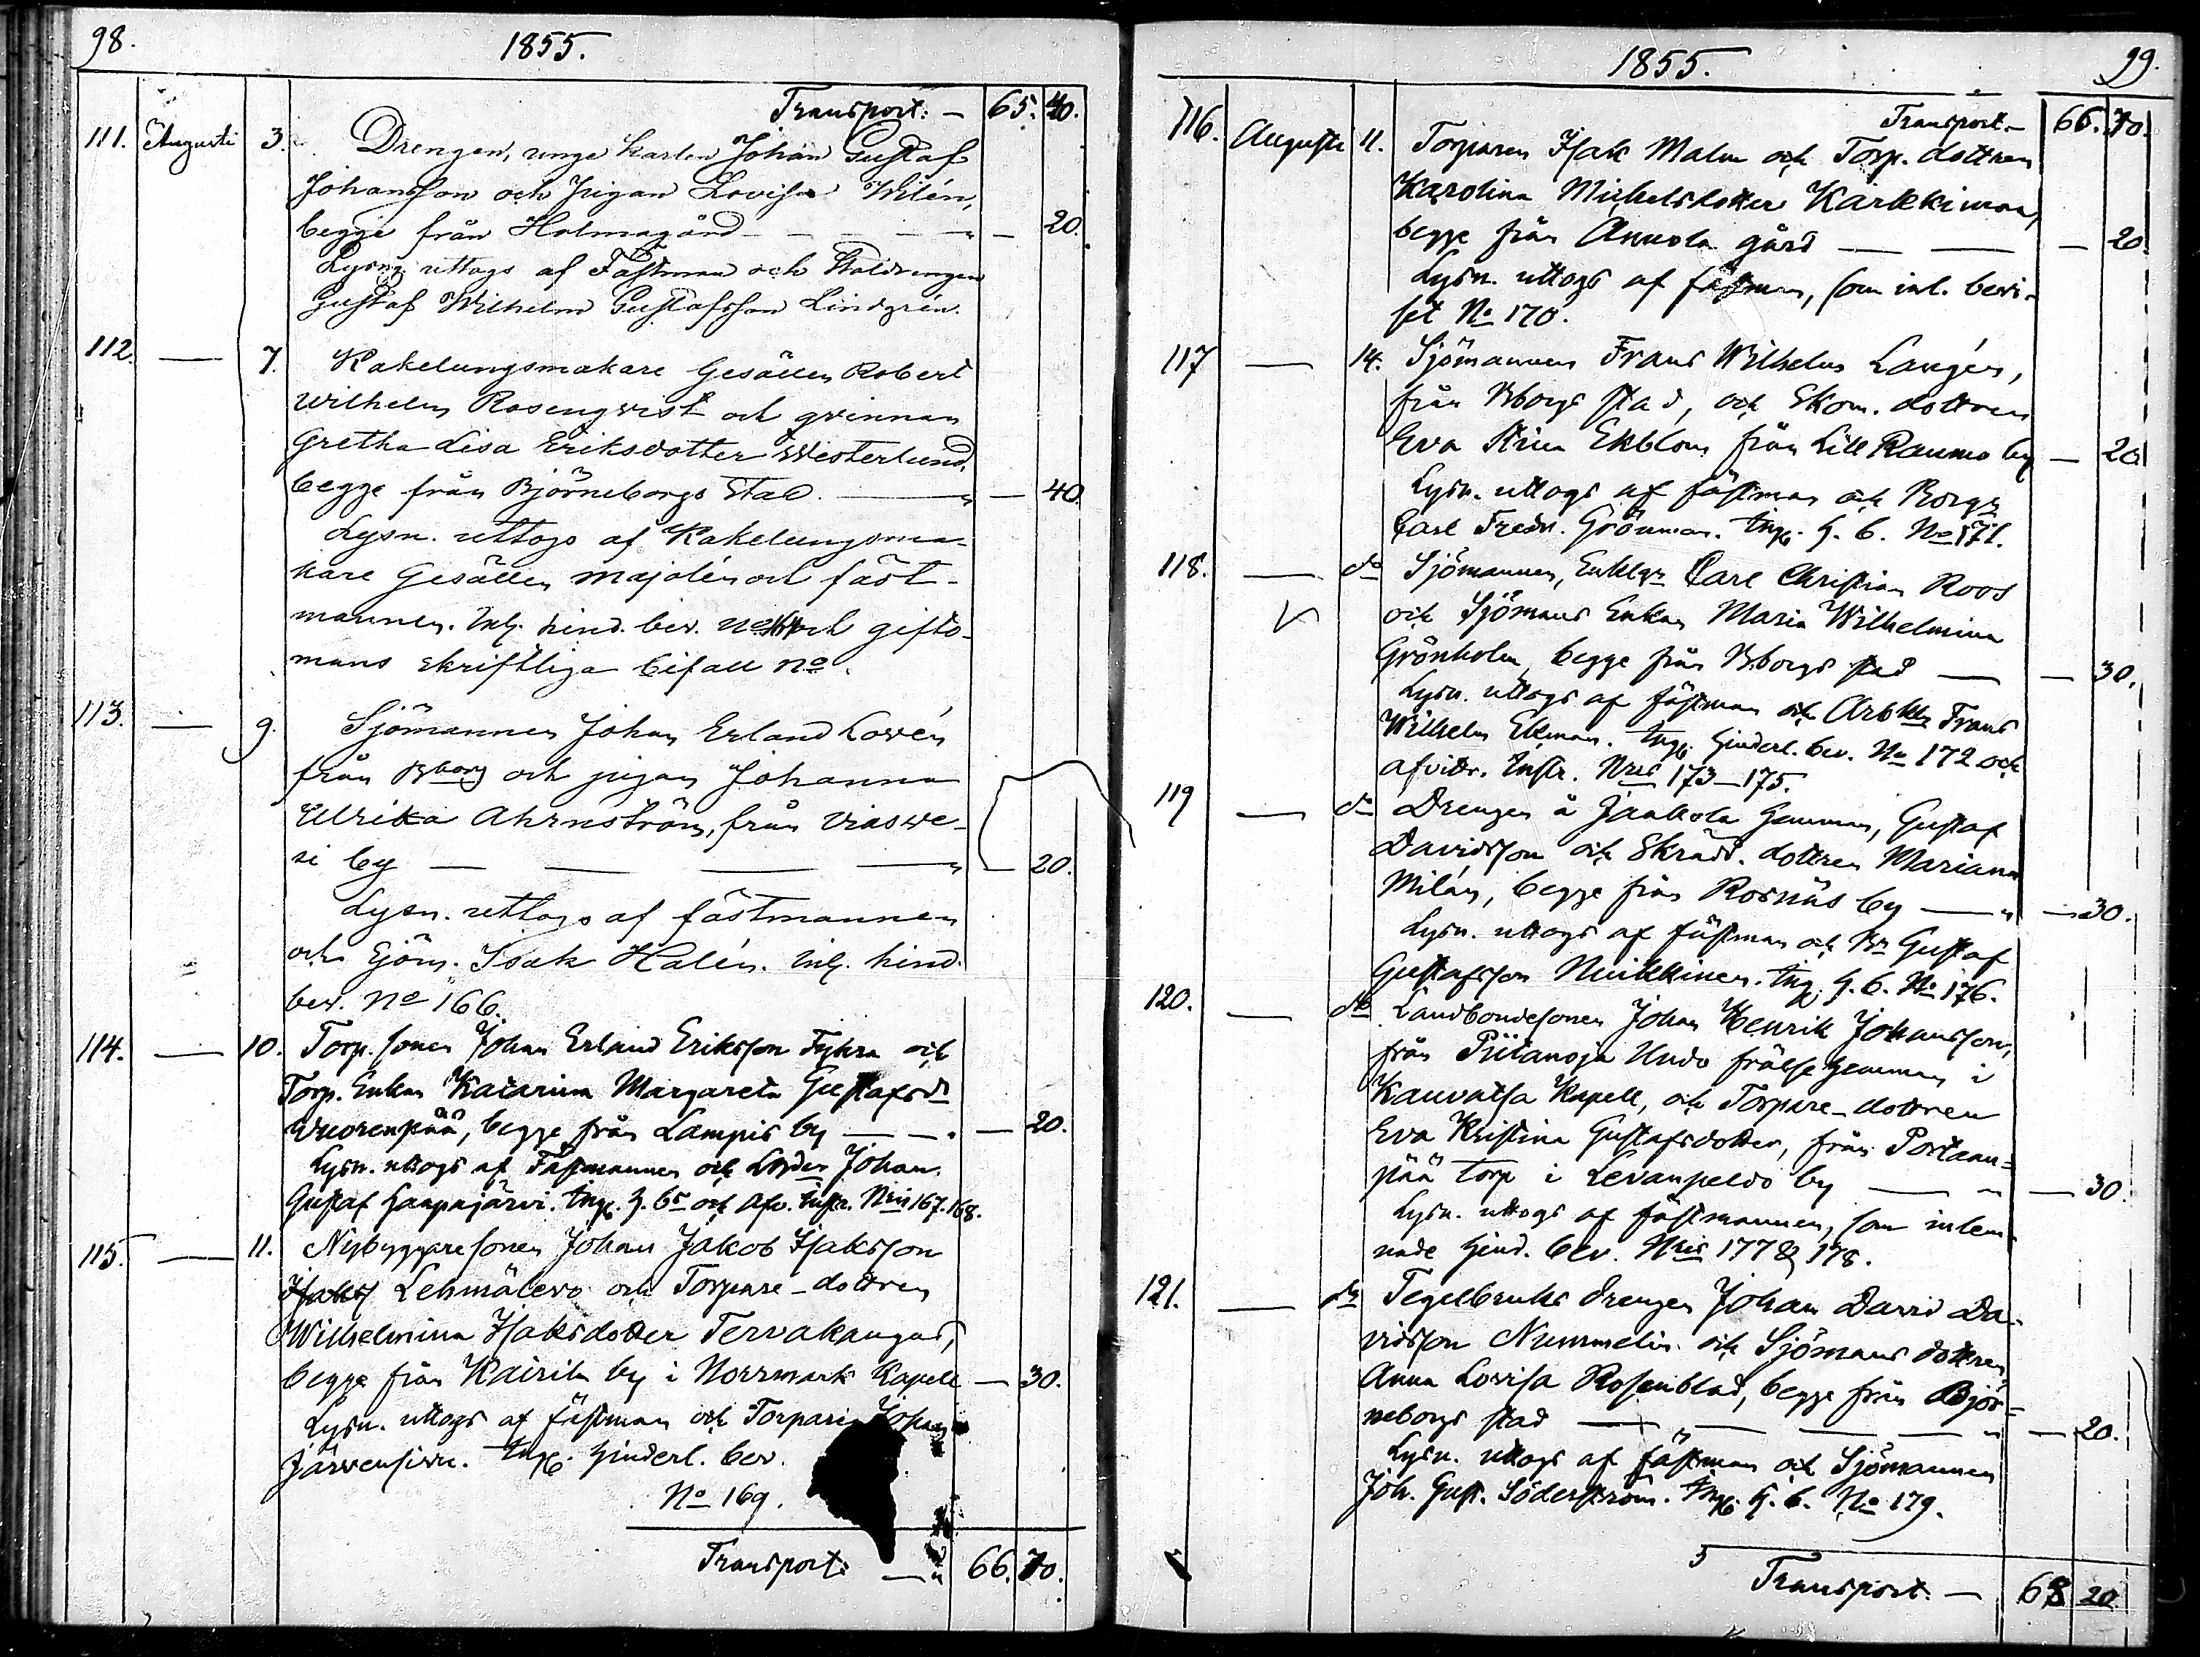 98.
1855.
Transport: — 65. 40.
111. Augusti 3. Drengen, unge karlen Johan Gustaf
Johansson och Pigan Lovisa Wilén,
begge från Holmagård — — — " — 20.
Lysng uttogs af Fästman och Stalldrengen
Gustaf Wilhelm Gustafsson Lindgrén.
112. — 7. Kakelungsmakare Gesällen Robert
Wilhelm Rosengvist och qvinnan
Gretha Lisa Eriksdotter Westerlund,
begge från Björneborgs Stad. — " — 40.
Lysn. uttogs af Kakelungsma-
kare Gesällen Majolén och fäst-
mannen. Inl. hind. bev. No och gifto-
mans skriftliga bifall No.
113. — 9. Sjömannen Johan Erland Lovén
från Bborg och pigan Johanna
Ulrika Ahrnström, från Viaswe-
si by — — — — " — 20.
Lysn. uttogs af fästmannen
och Sjöm. Isak Halén. Inl. hind.
bev. No 166.
114. — 10. Torp. sonen Johan Erland Eriksson Fykra och
Torp. Enkan Katarina Margareta Gustafsdr
Wuorenpää, begge från Lampis by — — " — 20.
Lysn. uttogs af Fästmannen och Johan
Gustaf Haapajärvi. Ingf. H. br och Afv. instr. Nris 167. 168.
115. — 11. Nybyggaresonen Johan Jakob Isaksson
Lehmälevo och Torpare-dottren
Wilhelmina Isaksdotter Tervakangas,
begge från Kairila by i Norrmark Kapell — 30.
Lysn. uttogs af fästman och Torparen Johan
Järvensivu. Ingf. Hinderl. bev.
No 169.
Transport: — " 66. 70.
1855.
99.
Transport. — 66. 70.
116. Augusti 11. Torparen Isak Malm och Torp. dottren
Karolina Michelsdotter Karkkimaa,
begge från Annola gård — — — 20
Lysn. uttogs af fästman, som inl. bevi-
set No 170.
117 — 14. Sjömannen Frans Wilhelm Langén,
från Bborgs stad, och Skom. dottren
Eva Stina Ekblom från Lill Raumo by — 20
Lysn. uttogs af fästman och Borgr
Carl Fredr. Grönman. Ingf. H. b. No 171.
118. — do Sjömannen, Enklgn Carl Christian Roos
och Sjömans Enkan Maria Wilhelmina
Grönholm, begge från Bborgs stad — — 30.
Lysn. uttogs af fästman och Arbkln Frans
Wilhelm Ekman. Ingf. Hinderl. bev. No 172 och
afvittr. Instr. Nris 173—175.
119 — do Drengen å Jaakola hemman, Gustaf
Davidsson och Skrädd. dottren Mariana
Milán, begge från Rosnäs by — " — 30.
Lysn. uttogs af fästman och Bn Gustaf
Gustafsson Nuikkinen. Ingf. H. b. No 176.
120. — do Landbondesonen Johan Henrik Johansson,
från Piitanoja Uudo frälsehemman i
Kauvatsa Kapell, och Torpare-dottren
Eva Kristina Gustafsdotter, från Portaan=
pää torp i Levanpeldo by — " — 30.
Lysn. uttogs af fästmannen, som inlem-
nade Hind. bev. Nris 177 & 178.
121. — do Tegelbruks drengen Johan David Da-
vidsson Nummelin och Sjömans dottren
Anna Lovisa Rosenblad, begge från Björ=
neborgs stad — — — — " — 20.
Lysn. uttogs af fästman och Sjömannen
Joh. Gust. Söderström. Ingf. H. b. No 179.
Transport. — 68 20